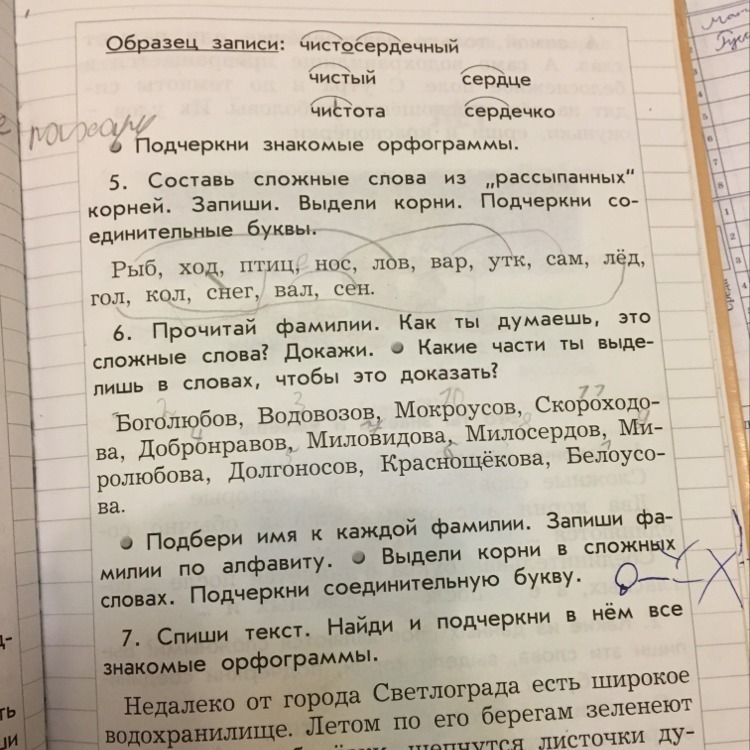 Образец записи: чистосердечный
чистый сердце
чистота сердечко
Подчеркни знакомые орфограммы.
5. Составь сложные слова из „рассыпанных“
корней. Запиши. Выдели корни. Подчеркни со-
единительные буквы.
Рыб, ход, птиц, нос, лов, вар, утк, сам, лёд,
гол, кол, снег, вал, сен.
6. Прочитай фамилии. Как ты думаешь, это
сложные слова? Докажи. Какие части ты выде-
лишь в словах, чтобы это доказать?
Боголюбов, Водовозов, Мокроусов, Скороходо-
ва, Добронравов, Миловидова, Милосердов, Ми-
ролюбова, Долгоносов, Краснощёкова, Белоусо-
ва.
Подбери имя к каждой фамилии. Запиши фа-
милии по алфавиту. Выдели корни в сложных
словах. Подчеркни соединительную букву.
7. Спиши текст. Найди и подчеркни в нём все
знакомые орфограммы.
Недалеко от города Светлограда есть широкое
водохранилище. Летом по его берегам зеленеют
шепчутся листочки ду-